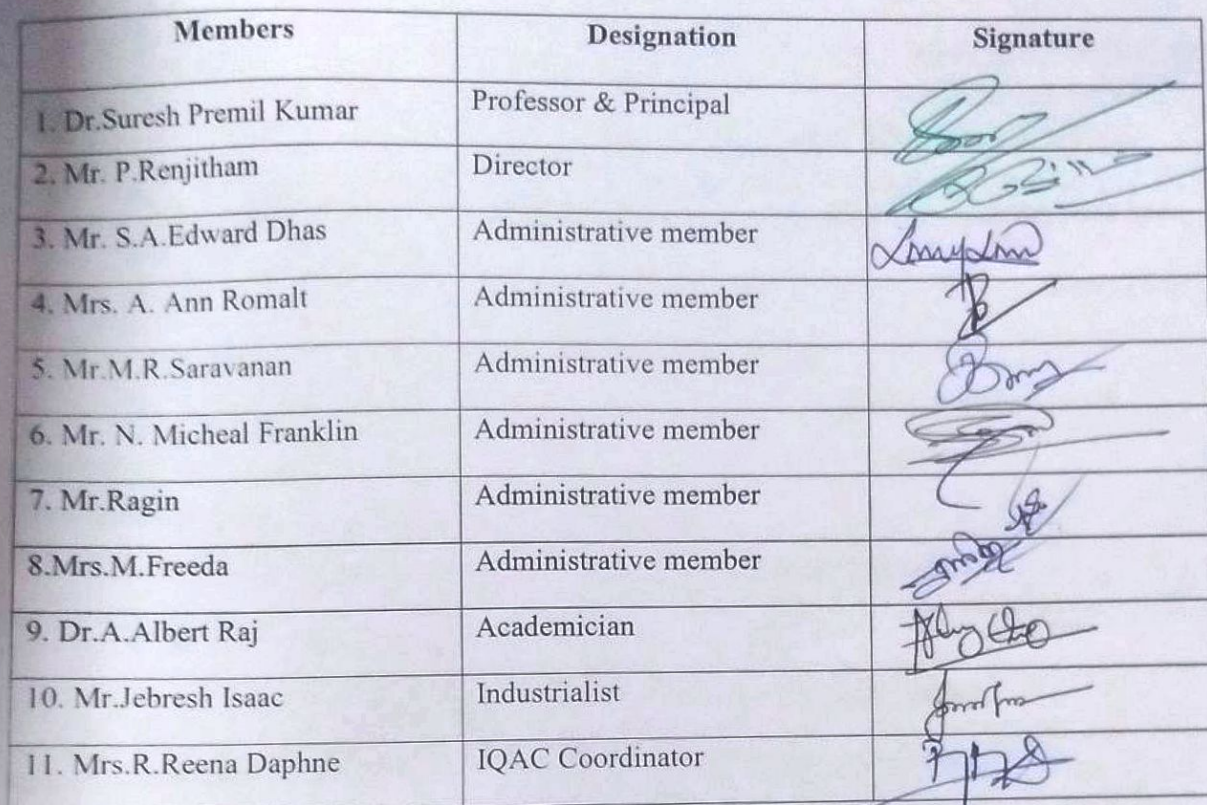 Members Designation Signature
1. Dr.Suresh Premil Kumar Professor & Principal
2. Mr. P.Renjitham Director
3. Mr. S.A.Edward Dhas Administrative member
4. Mrs. A. Ann Romalt Administrative member
5. Mr.M.R.Saravanan Administrative member
6. Mr. N. Micheal Franklin Administrative member
7. Mr.Ragin Administrative member
8.Mrs.M.Freeda Administrative member
9. Dr.A.Albert Raj Academician
10. Mr.Jebresh Isaac Industrialist
11. Mrs.R.Reena Daphne IQAC Coordinator